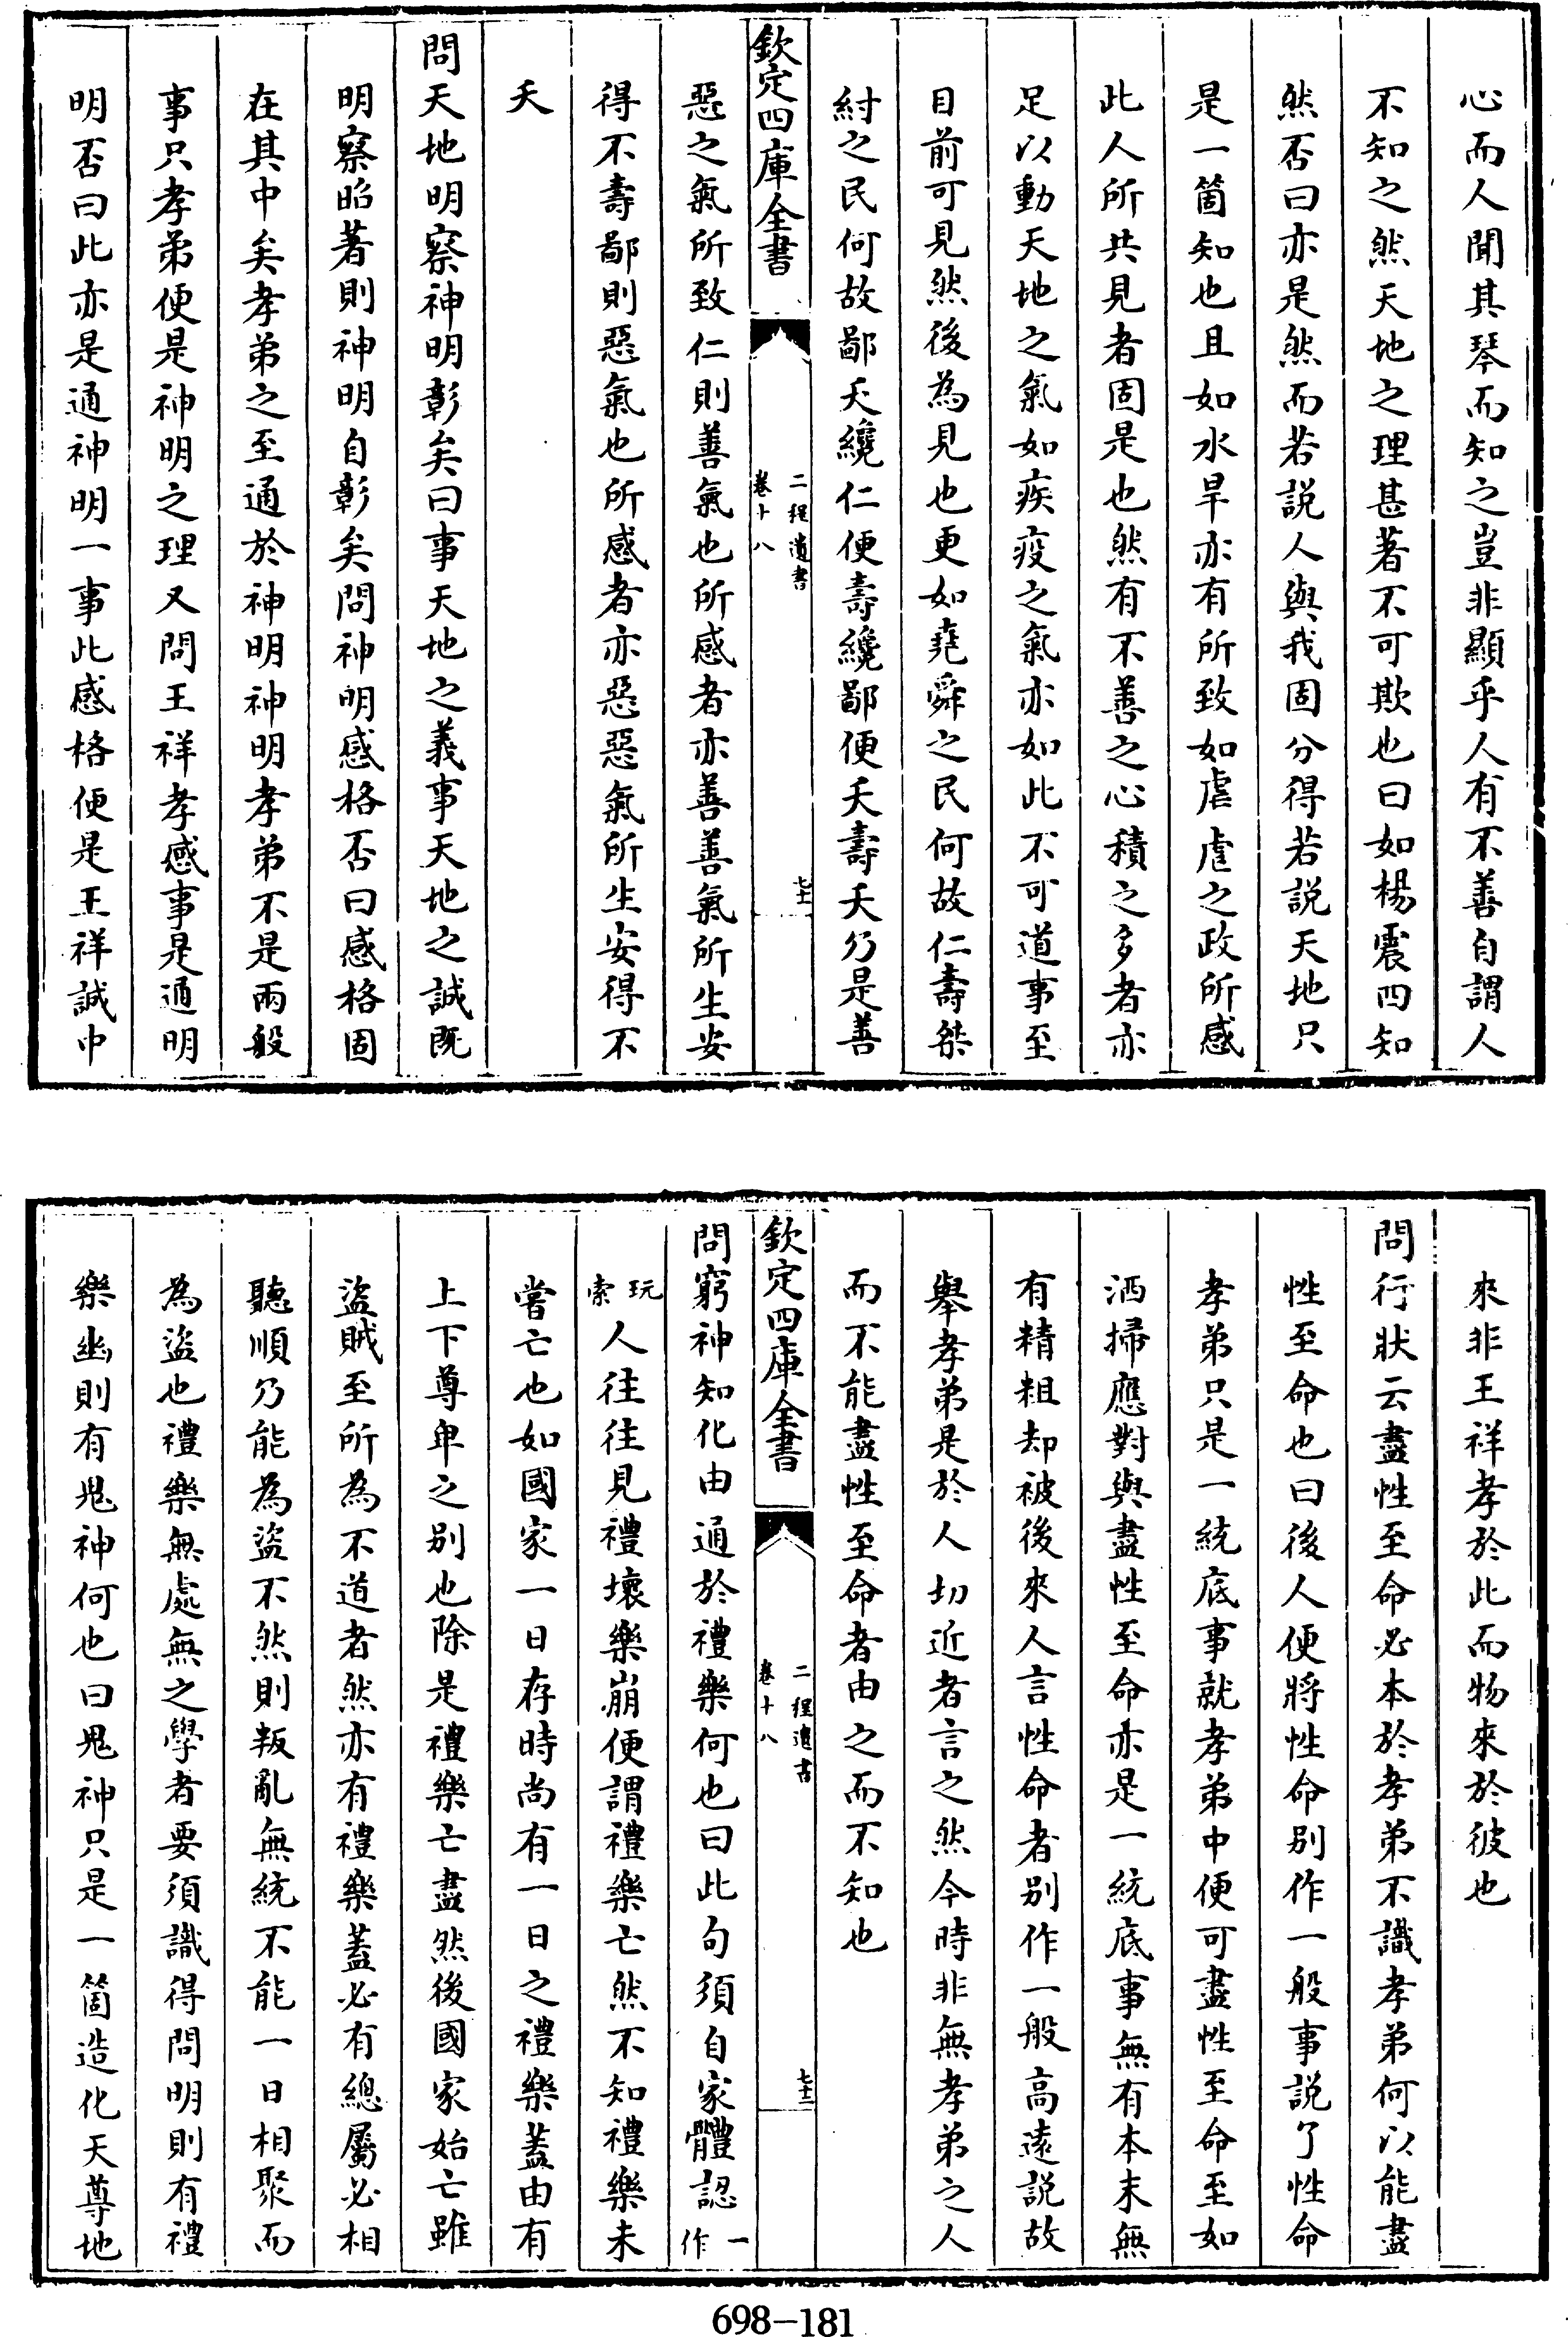 心而人聞其琴而知之豈非顯乎人有不善自謂人
不知之然天地之理甚著不可欺也曰如楊震四知
然否曰亦是然而若説人與我固分得若説天地只
是一箇知也且如水旱亦有所致如虐虐之政所感
此人所共見者固是也然有不善之心積之多者亦
足以動天地之氣如疾疫之氣亦如此不可道事至
目前可見然後為見也更如堯舜之民何故仁壽桀
紂之民何故鄙夭纔仁便壽纔鄙便夭壽夭乃是善
欽定四庫全書
二程遺書
卷十八
七十一
惡之氣所致仁則善氣也所感者亦善善氣所生安
得不壽鄙則惡氣也所感者亦惡惡氣所生安得不
夭
問天地明察神明彰矣曰事天地之義事天地之誠既
明察昭著則神明自彰矣問神明感格否曰感格固
在其中矣孝弟之至通於神明神明孝弟不是兩般
事只孝弟便是神明之理又問王祥孝感事是通明
明否曰此亦是通神明一事此感格便是王祥誠中
來非王祥孝於此而物來於彼也
問行狀云盡性至命必本於孝弟不識孝弟何以能盡
性至命也曰後人便將性命别作一般事説了性命
孝弟只是一統底事就孝弟中便可盡性至命至如
洒掃應對與盡性至命亦是一統底事無有本末無
有精粗却被後來人言性命者别作一般高遠説故
舉孝弟是於人切近者言之然今時非無孝弟之人
而不能盡性至命者由之而不知也
欽定四庫全書
二程遺書
卷十八
七十二
問窮神知化由通於禮樂何也曰此句須自家體認一作
玩索人往往見禮壞樂崩便謂禮樂亡然不知禮樂未
嘗亡也如國家一日存時尚有一日之禮樂蓋由有
上下尊卑之别也除是禮樂亡盡然後國家始亡雖
盜賊至所為不道者然亦有禮樂蓋必有總屬必相
聽順乃能為盜不然則叛亂無統不能一日相聚而
為盜也禮樂無處無之學者要須識得問明則有禮
樂幽則有鬼神何也曰鬼神只是一箇造化天尊地
698-181